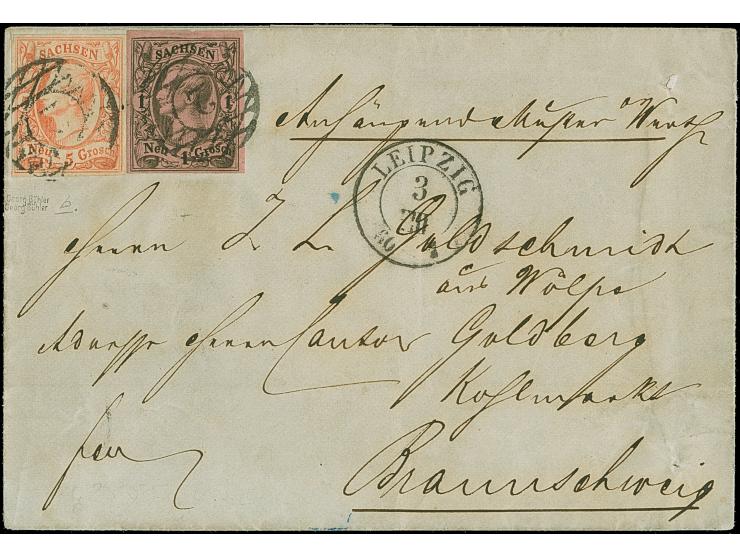 SACHSEN
Neu 5 Grosch
SACHSEN
1 1
Neu 1 Grosch
Anhängend Muster Werth
LEIPZIG
3
Georg Bühler
Georg Bühler
b.
Herrn J. L. Goldschmidt
aus Wölpe
Adresse Herrn Cantor Goldberg
Kohlmarkt
Braunschweig